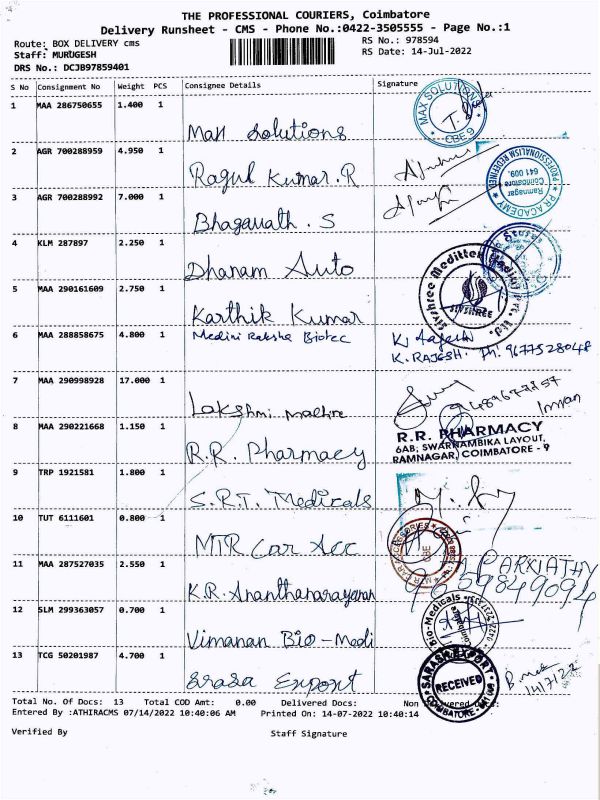 THE PROFESSIONAL COURIERS, Coimbatore
Delivery Runsheet - CMS - Phone No.:0422-3505555 - Page No.:1
Route: BOX DELIVERY cms
RS No.: 978594
Staff: MURUGESH
RS Date: 14-Jul-2022
DRS No.: DCJB97859401
S No Consignment No Weight PCS Consignee Details Signature
1 MAA 286750655 1.400 1 Max Solutions
MAX SOLUTION CBE 9
2 AGR 700288959 4.950 1 Ragul Kumar.R
PROFESSIONALISM REDEFINED Ramnagar Coimbatore 641 009. PR ACADEMY
3 AGR 700288992 7.000 1 Bhagavath.S
4 KLM 287897 2.250 1 Dhanam Auto
5 MAA 290161609 2.750 1 Karthik Kumar
SIVSHREE
6 MAA 288858675 4.800 1 Medini Raksha Biotec
K. RAJESH. Ph: 9677528048
7 MAA 290998928 17.000 1 Lakshmi Machine
8 MAA 290221668 1.150 1 R.R. Pharmacy
R.R. PHARMACY
6AB, SWARNAMBIKA LAYOUT,
RAMNAGAR, COIMBATORE - 9
9 TRP 1921581 1.800 1 S.R.T. Medicals
10 TUT 6111601 0.800 1 MTR Car Acc
MTR CAR ACCESSORIES CBE
11 MAA 287527035 2.550 1 K.R. Ananthanarayanan
12 SLM 299363057 0.700 1 Vimanan Bio-Medi
Bio-Medicals
13 TCG 50201987 4.700 1 Srasa Export
SARASA EXPORT RECEIVED
14/7/22
Total No. Of Docs: 13 Total COD Amt: 0.00 Delivered Docs: Non Delivered Docs:
Entered By :ATHIRACMS 07/14/2022 10:40:06 AM Printed On: 14-07-2022 10:40:14
Verified By Staff Signature